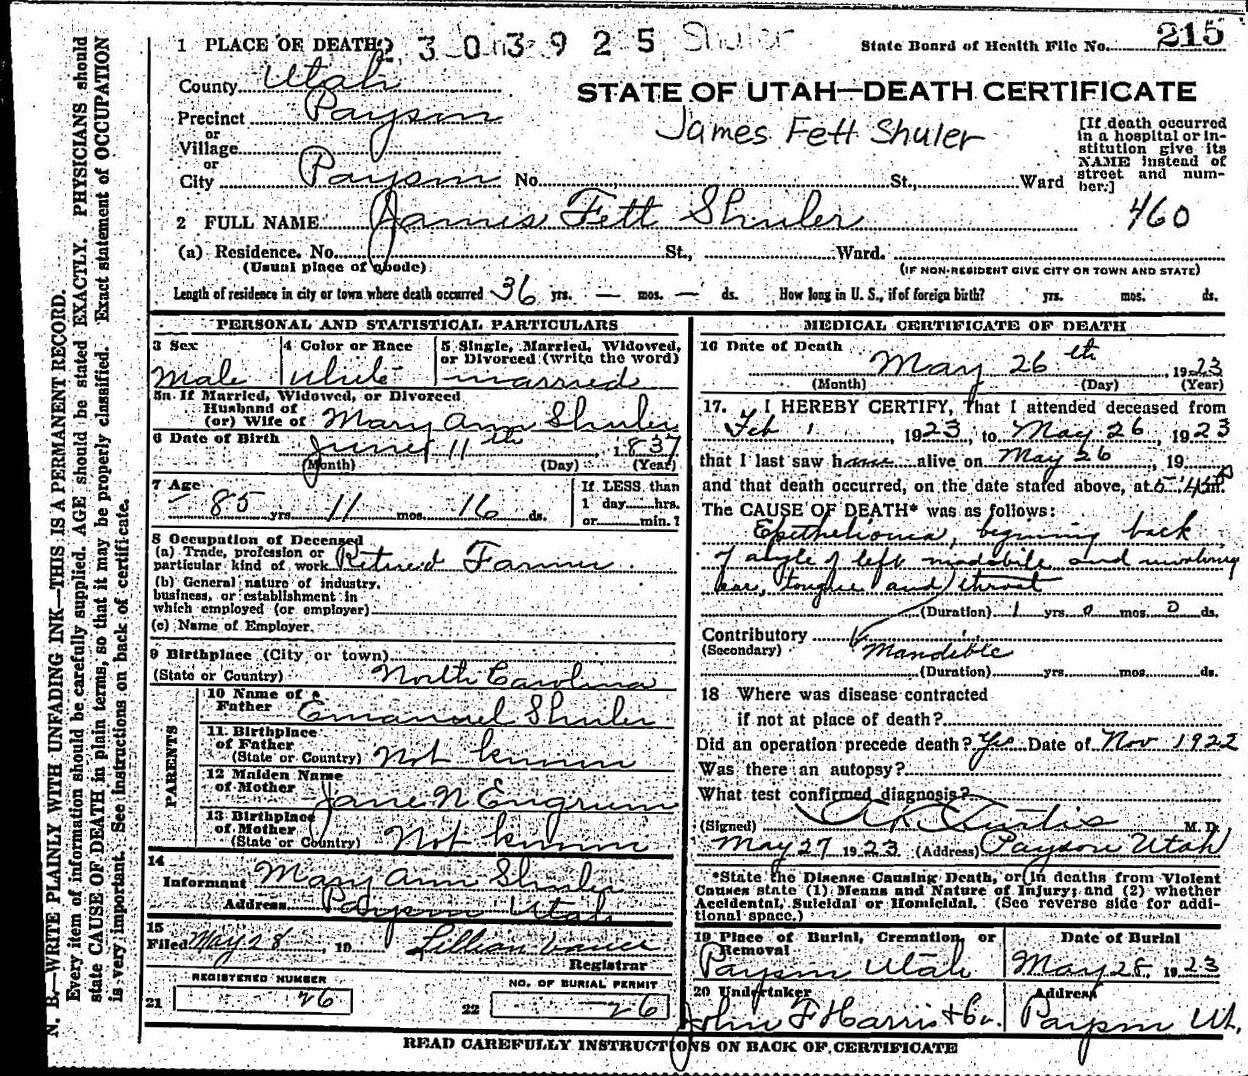 1 PLACE OF DEATH 303925 Shuler State Board of Health File No. 215
County Utah
STATE OF UTAH—DEATH CERTIFICATE
Precinct Payson
James Fett Shuler
or
Village
or
City Payson No. St., Ward
[If death occurred
in a hospital or in-
stitution give its
NAME instead of
street and num-
ber.]
460
2 FULL NAME James Fett Shuler
(a) Residence. No. St., Ward.
(Usual place of abode) (IF NON-RESIDENT GIVE CITY OR TOWN AND STATE)
Length of residence in city or town where death occurred 36 yrs. — mos. — ds. How long in U. S., if of foreign birth? yrs. mos. ds.
PERSONAL AND STATISTICAL PARTICULARS
3 Sex
Male
4 Color or Race
White
5 Single, Married, Widowed,
or Divorced (write the word)
married
5a If Married, Widowed, or Divorced
Husband of
(or) Wife of Mary Ann Shuler
6 Date of Birth June 11th, 1837
(Month) (Day) (Year)
7 Age
85 yrs. 11 mos. 16 ds.
If LESS than
1 day hrs.
or min.?
8 Occupation of Deceased
(a) Trade, profession or
particular kind of work Retired Farmer
(b) General nature of industry,
business, or establishment in
which employed (or employer)
(c) Name of Employer
9 Birthplace (City or town)
(State or Country) North Carolina
PARENTS
10 Name of
Father Emanuel Shuler
11 Birthplace
of Father
(State or Country) Not known
12 Maiden Name
of Mother Jane N Engrum
13 Birthplace
of Mother
(State or Country) Not known
14
Informant Mary Ann Shuler
Address Payson Utah
15
Filed May 28, 19 Lillian Vance
Registrar
REGISTERED NUMBER
21 26
NO. OF BURIAL PERMIT
22 26
MEDICAL CERTIFICATE OF DEATH
16 Date of Death
May 26th, 1923
(Month) (Day) (Year)
17. I HEREBY CERTIFY, That I attended deceased from
Feb 1, 1923, to May 26, 1923
that I last saw h alive on May 26, 19
and that death occurred, on the date stated above, at 5:45 m.
The CAUSE OF DEATH* was as follows:
Epithelioma, begining back
of angle of left madabile and involving
ear, tongue and throat
(Duration) 1 yrs. 0 mos. 0 ds.
Contributory
(Secondary) Mandible
(Duration) yrs. mos. ds.
18 Where was disease contracted
if not at place of death?
Did an operation precede death? Yes Date of Nov 1922
Was there an autopsy?
What test confirmed diagnosis?
(Signed) Curtis M D
May 27 1923 (Address) Payson Utah
*State the Disease Causing Death, or in deaths from Violent
Causes state (1) Means and Nature of Injury; and (2) whether
Accidental, Suicidal or Homicidal. (See reverse side for addi-
tional space.)
19 Place of Burial, Cremation, or
Removal
Payson Utah
Date of Burial
May 28, 1923
20 Undertaker
John F Harris & Co.
Address
Payson Ut.
READ CAREFULLY INSTRUCTIONS ON BACK OF CERTIFICATE
N. B.—WRITE PLAINLY WITH UNFADING INK—THIS IS A PERMANENT RECORD.
Every item of information should be carefully supplied. AGE should be stated EXACTLY. PHYSICIANS should
state CAUSE OF DEATH in plain terms, so that it may be properly classified. Exact statement of OCCUPATION
is very important. See instructions on back of certificate.